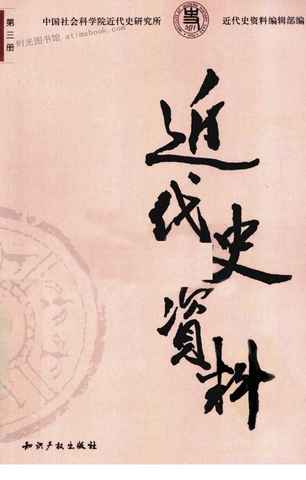 第三册
中国社会科学院近代史研究所
近代史资料编辑部编
时光图书馆 atimebook.com
近代史資料
知识产权出版社